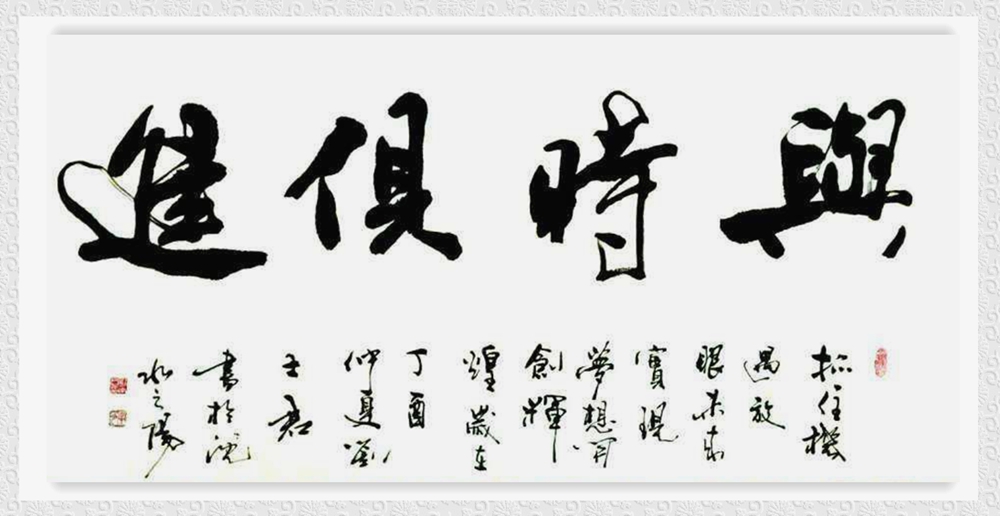 與時俱進
抓住機
遇放
眼未來
實現
夢想開
創輝
煌歲在
丁酉
仲夏劉
君
書於沈
水之陽